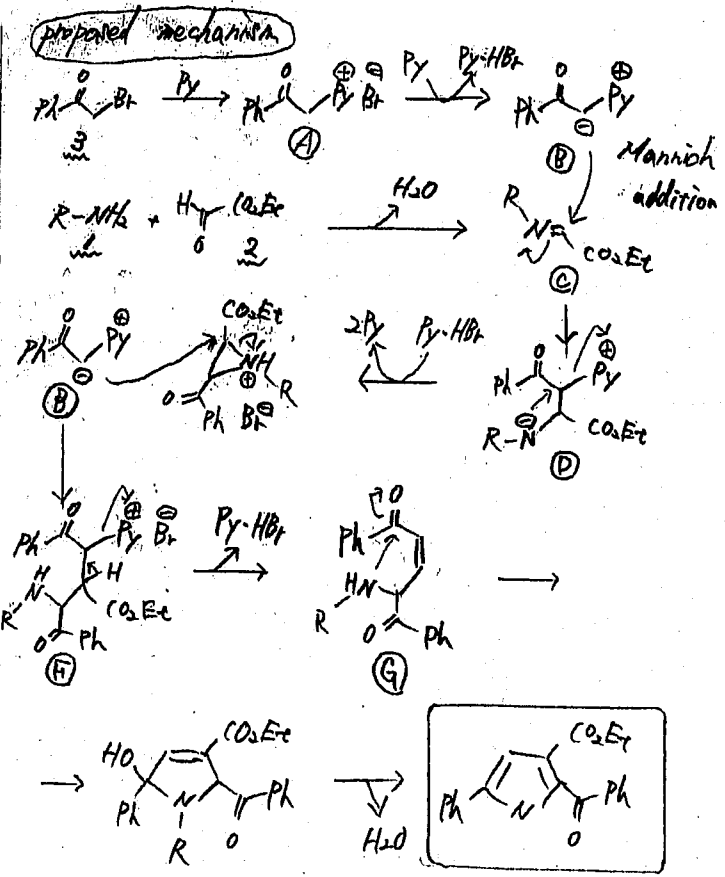 proposed mechanism
Ph O Br Py Ph O Py ⊕ Br ⊖ Py Py·HBr Ph O ⊖ Py ⊕
3 A B
Mannich
addition
R-NH2 + H O CO2Et H2O R N= CO2Et
1 2 C
Ph O ⊖ Py ⊕ CO2Et NH ⊕ R O Ph Br ⊖ 2Py Py·HBr Ph O Py ⊕ R-N ⊖ CO2Et
B D
Ph O Py ⊕ Br ⊖ H N H CO2Et R O Ph Py·HBr Ph O HN R O Ph
F G
HO Ph N R CO2Et O Ph H2O Ph N CO2Et O Ph